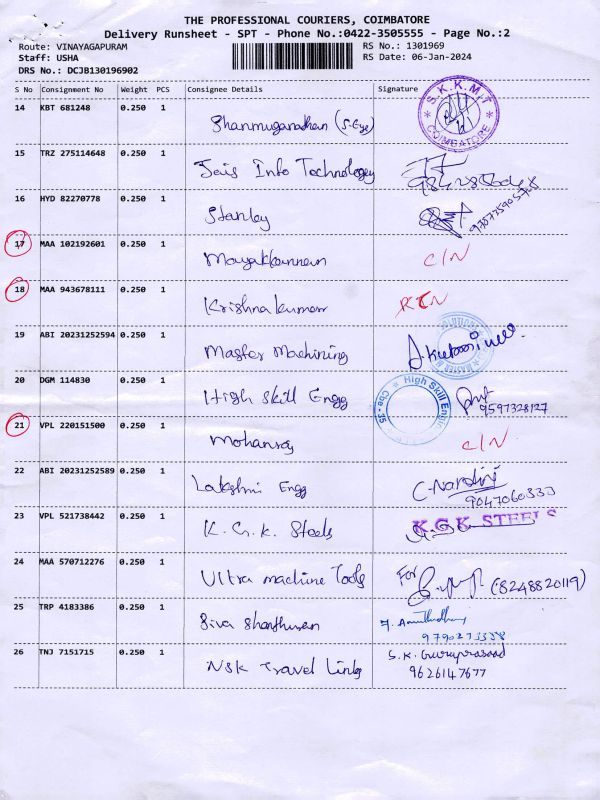 THE PROFESSIONAL COURIERS, COIMBATORE
Delivery Runsheet - SPT - Phone No.:0422-3505555 - Page No.:2
Route: VINAYAGAPURAM RS No.: 1301969
Staff: USHA RS Date: 06-Jan-2024
DRS No.: DCJB130196902
S No Consignment No Weight PCS Consignee Details Signature
14 KBT 681248 0.250 1 Shanmuganathan (S-Eye) S.K.K.M.T COIMBATORE
15 TRZ 275114648 0.250 1 Jeis Info Technology
16 HYD 82270778 0.250 1 Stanley
17 MAA 102192601 0.250 1 Mayakkannan C/N
18 MAA 943678111 0.250 1 Krishnakumar
19 ABI 20231252594 0.250 1 Master Machining
20 DGM 114830 0.250 1 High Skill Engg High Skill Engin Cbe - 35 9597328127
21 VPL 220151500 0.250 1 Mohanraj C/N
22 ABI 20231252589 0.250 1 Lakshmi Engg C-Nandini 9047060333
23 VPL 521738442 0.250 1 K. G. K. Steels K.G.K. STEELS
24 MAA 570712276 0.250 1 Ultra machine Tools For (8248820119)
25 TRP 4183386 0.250 1 Siva 9790273338
26 TNJ 7151715 0.250 1 NSK Travel Links S.K. Guruprasaad
9626147677